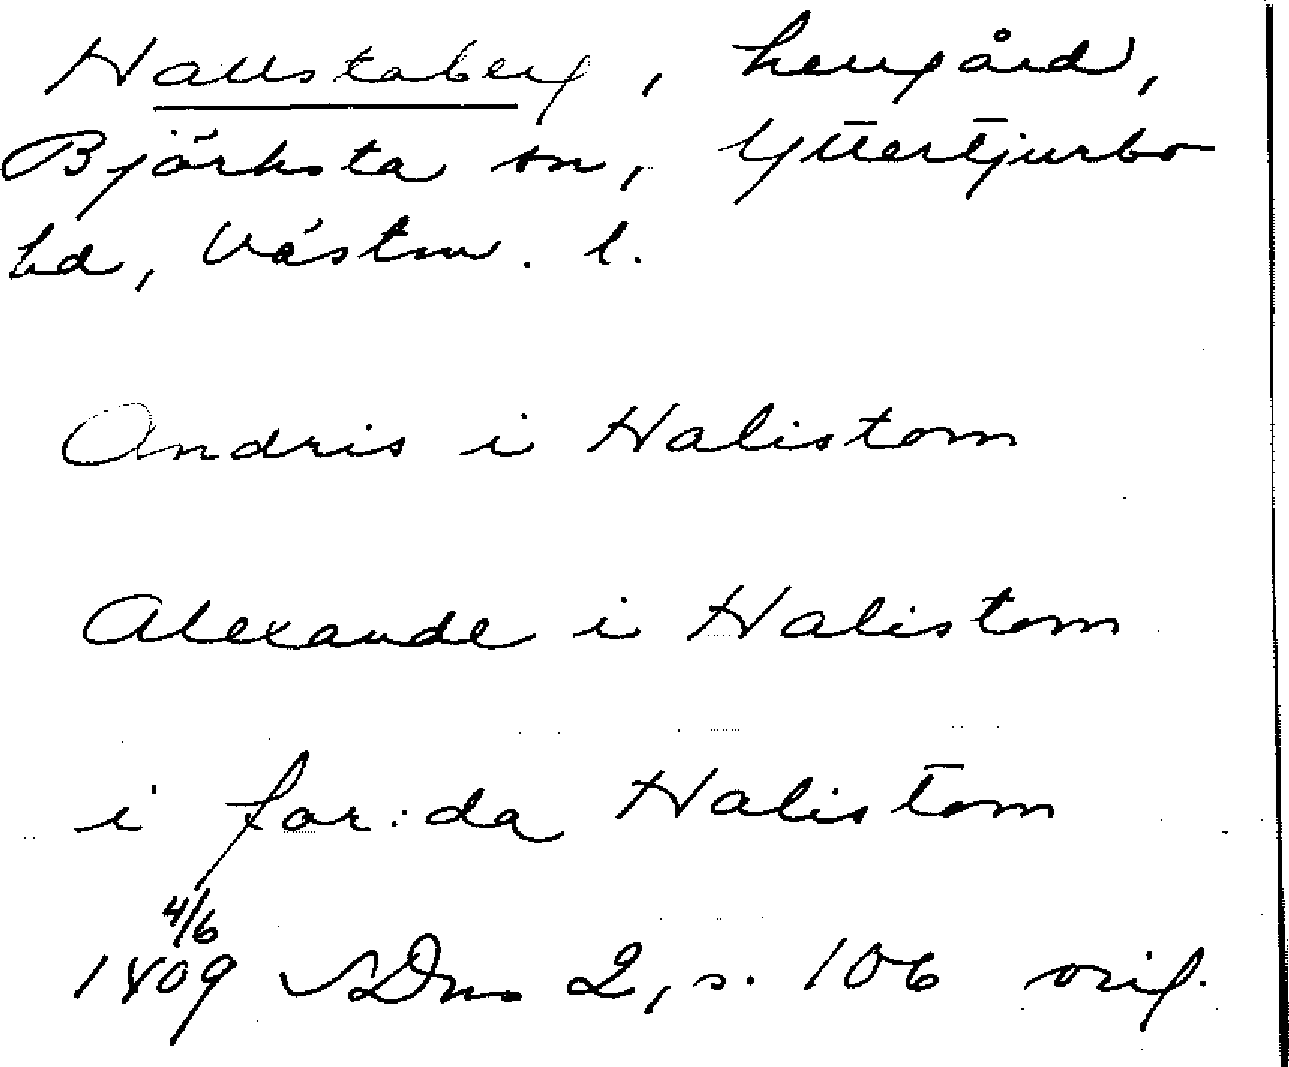 Hallstaberg, herrgård,
Björksta sn, Yttertjurbo
hd, Västm. l.
Andris i Halistom
Alexande i Halistom
i for:da Halistom
4/6
1409 SDns 2, s. 106 orig.